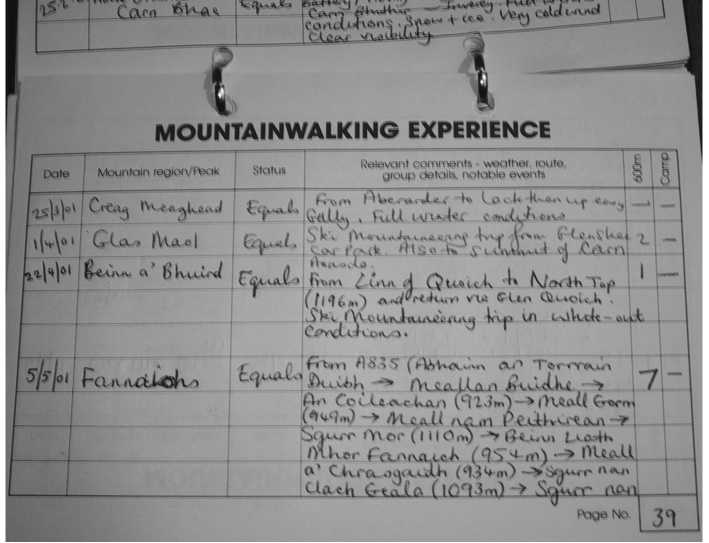 25.2
Carn Bhac Equals
Carn Bhuthir
conditions. Snow + ice. Very cold and
Clear visibility
MOUNTAINWALKING EXPERIENCE
Date Mountain region/Peak Status Relevant comments - weather, route, group details, notable events 600m Camp
25/3/01 Creag Meaghead Equals From Aberarder to Loch then up easy 1 —
Gully. Full winter conditions
1/4/01 Glas Maol Equals Ski Mountaineering trip from Glenshee 2 —
Car Park. Also to Summit of Carn
22/4/01 Beinn a' Bhuird Equals From Linn of Quoich to North Top 1 —
(1196m) and return via Glen Quoich.
Ski Mountaineering trip in white-out
Conditions.
5/5/01 Fannaichs Equals From A835 (Abhainn an Torrain 7 —
Duibh → Meallan Buidhe →
An Coileachan (923m) → Meall Gorm
(949m) → Meall nam Peithirean →
Sgurr Mor (1110m) → Beinn Liath
Mhor Fannaich (954m) → Meall
a' Chrasgaidh (934m) → Sgurr nan
Clach Geala (1093m) → Sgurr nan
Page No. 39